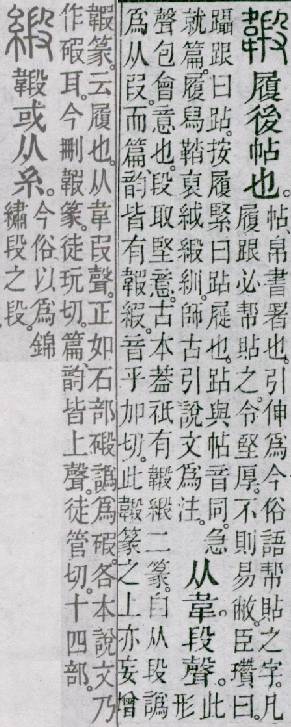 𩏇履後帖也。帖、帛書署也。引伸爲今俗語幫貼之字。凡
履跟必幫貼之令堅厚。不則易敝。臣瓚曰。
躡跟曰跕。按履緊曰跕屣也。跕與帖音同。急
就篇。履舄鞜裒絨緞紃。師古引說文爲注。从韋段聲。此形
聲包會意也。段取堅意。古本葢衹有𩏇緞二篆。自从段譌
爲从叚。而篇韵皆有䪗緞。音乎加切。此𩏇篆之上亦妄增
䪗篆。云履也。从韋叚聲。正如石部碫譌爲碬。各本說文乃
作碬耳。今刪䪗篆。徒玩切。篇韵皆上聲。徒管切。十四部。
緞𩏇或从糸。今俗以爲錦
繡段之段。